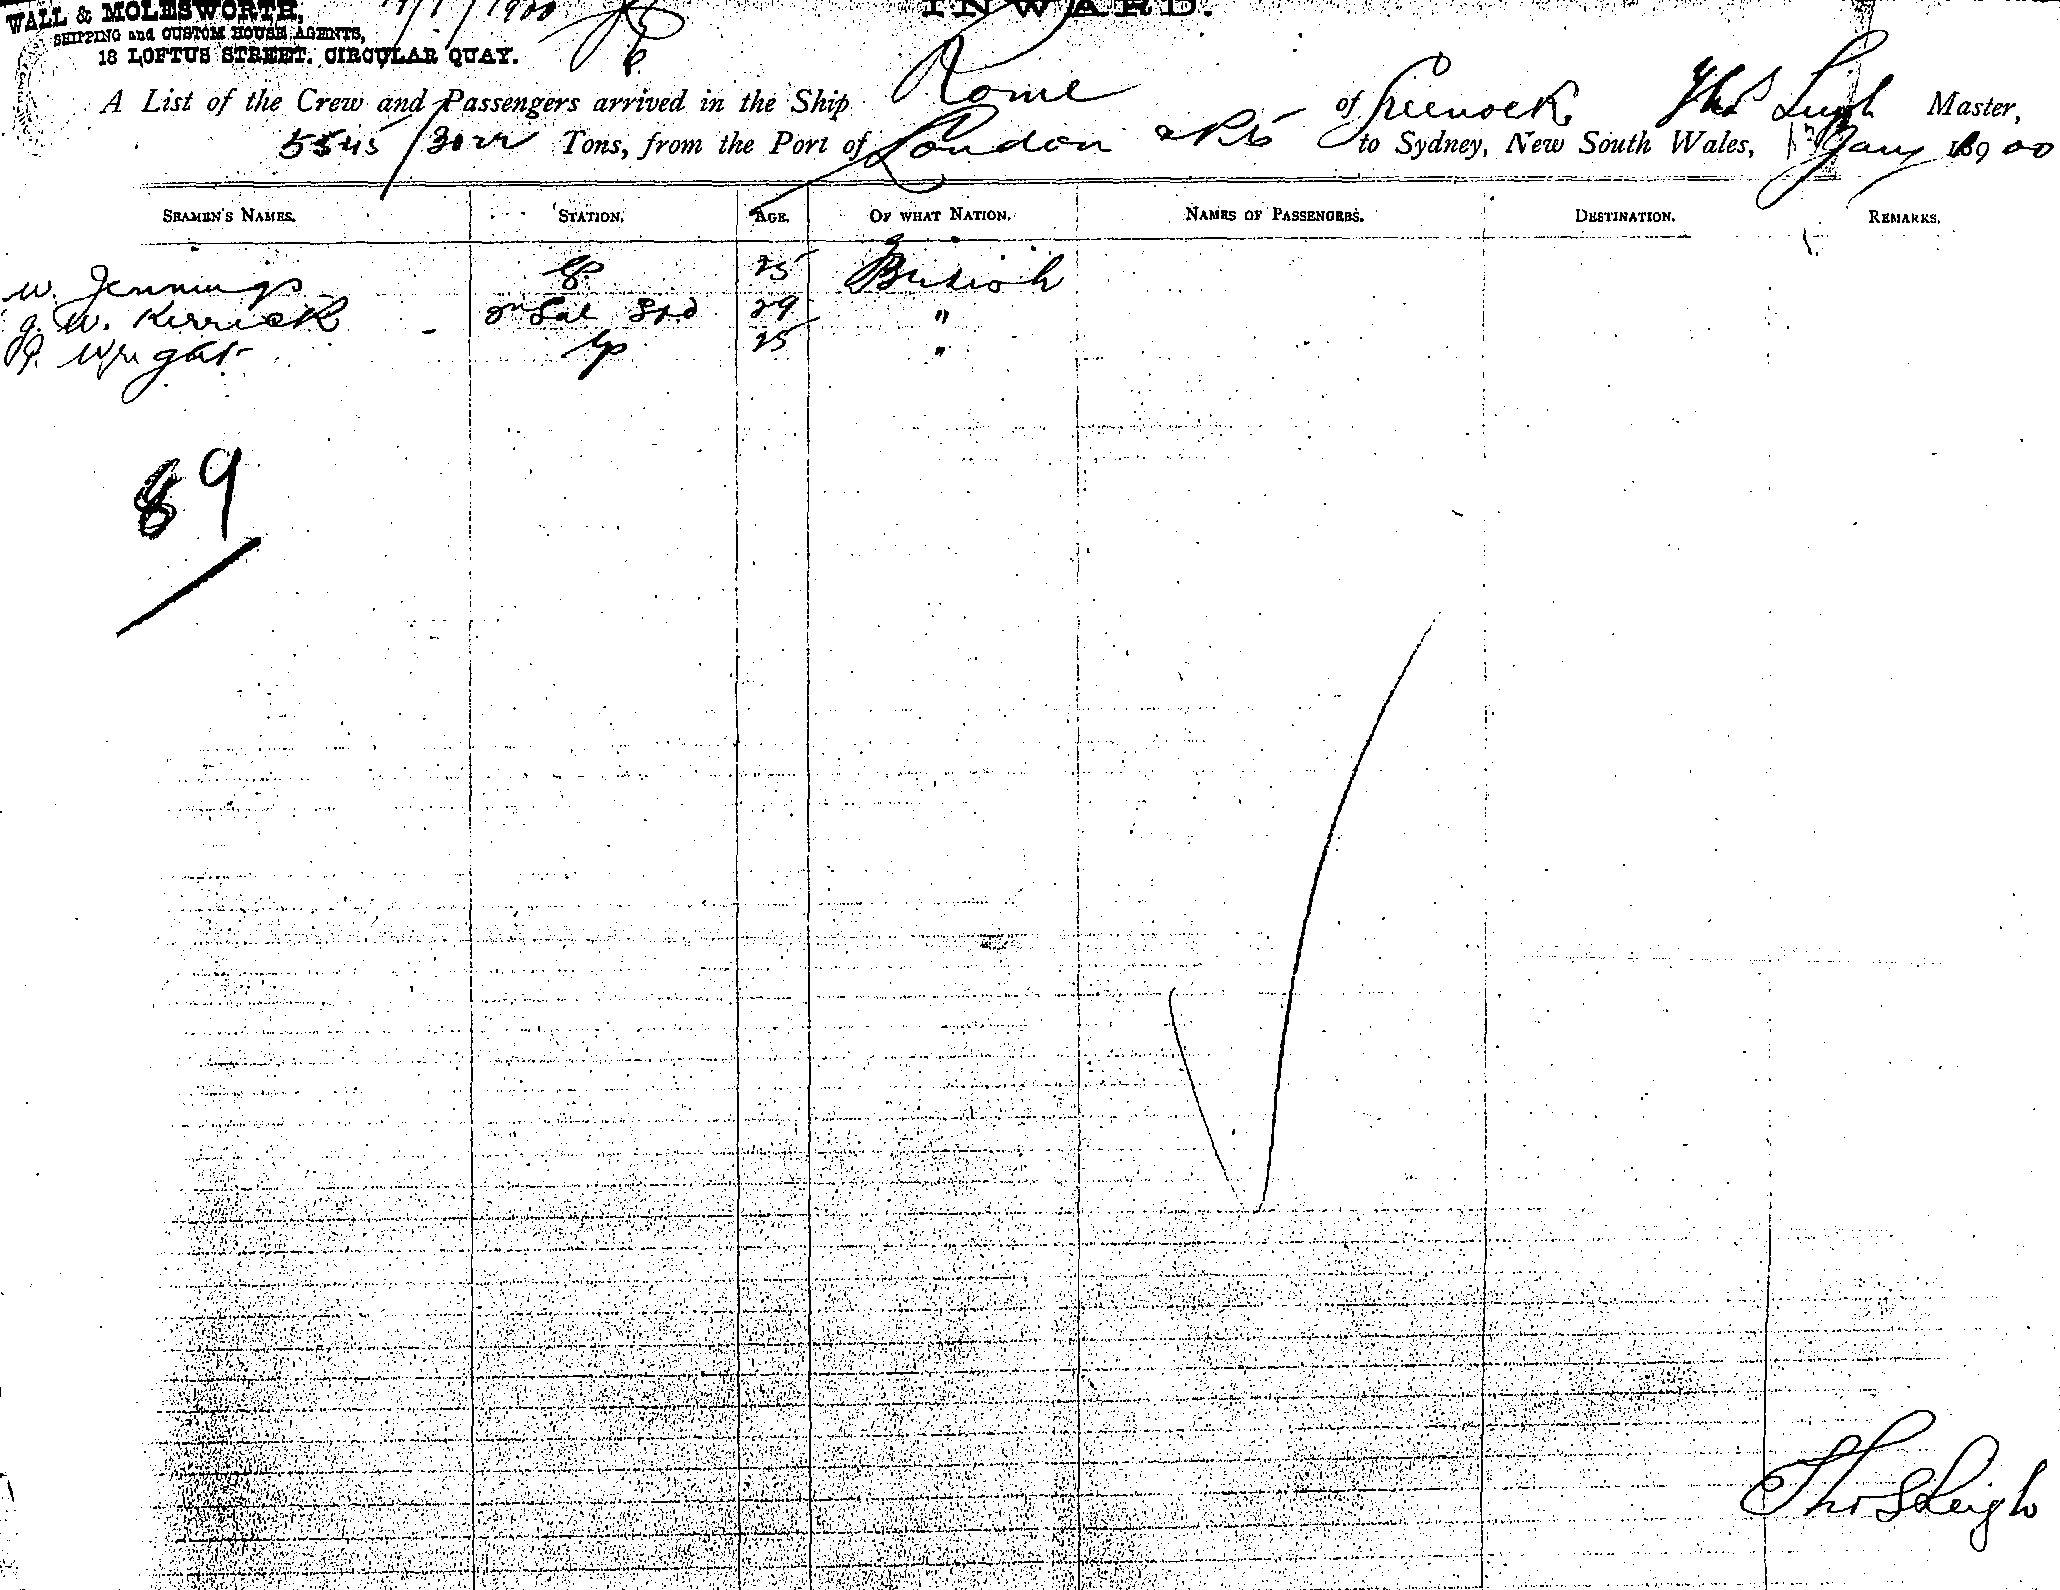 WALL & MOLESWORTH, 1/1/1900 INWARD.
SHIPPING and CUSTOM HOUSE AGENTS,
18 LOFTUS STREET. CIRCULAR QUAY.
A List of the Crew and Passengers arrived in the Ship Rome of Greenock Thos Leigh Master,
5545 / Tons, from the Port of London to Sydney, New South Wales, Jany 1900
SEAMEN'S NAMES. STATION. AGE. OF WHAT NATION. NAMES OF PASSENGERS. DESTINATION. REMARKS.
W. Jennings 25 British
G. W. Kerrick 2n Sal 29 "
Wright 25 "
89
Thos Leigh